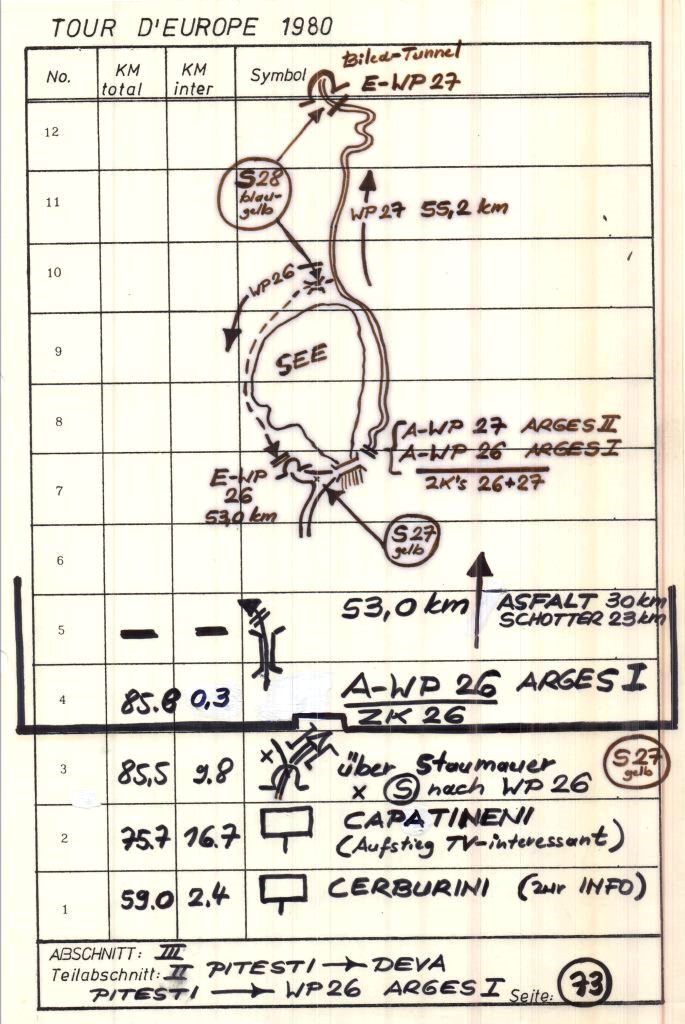 TOUR D'EUROPE 1980
No. KM total KM inter Symbol
Bilea-Tunnel
E-WP 27
12
S28 blau-gelb
11
WP 27 55,2 km
10
WP 26
9
SEE
8
A-WP 27 ARGES II
A-WP 26 ARGES I
ZK's 26+27
7
E-WP 26
53,0 km
S27 gelb
6
53,0 km ASFALT 30 km
SCHOTTER 23 km
5 - -
4 85.8 0,3 A-WP 26 ARGES I
ZK 26
3 85,5 9.8 x über Staumauer S27 gelb
x S nach WP 26
2 75.7 16.7 CAPATINENI
(Aufstieg TV-interessant)
1 59.0 2.4 CERBURINI (zur INFO)
ABSCHNITT: III
Teilabschnitt: II PITESTI → DEVA
PITESTI → WP26 ARGES I Seite: 73